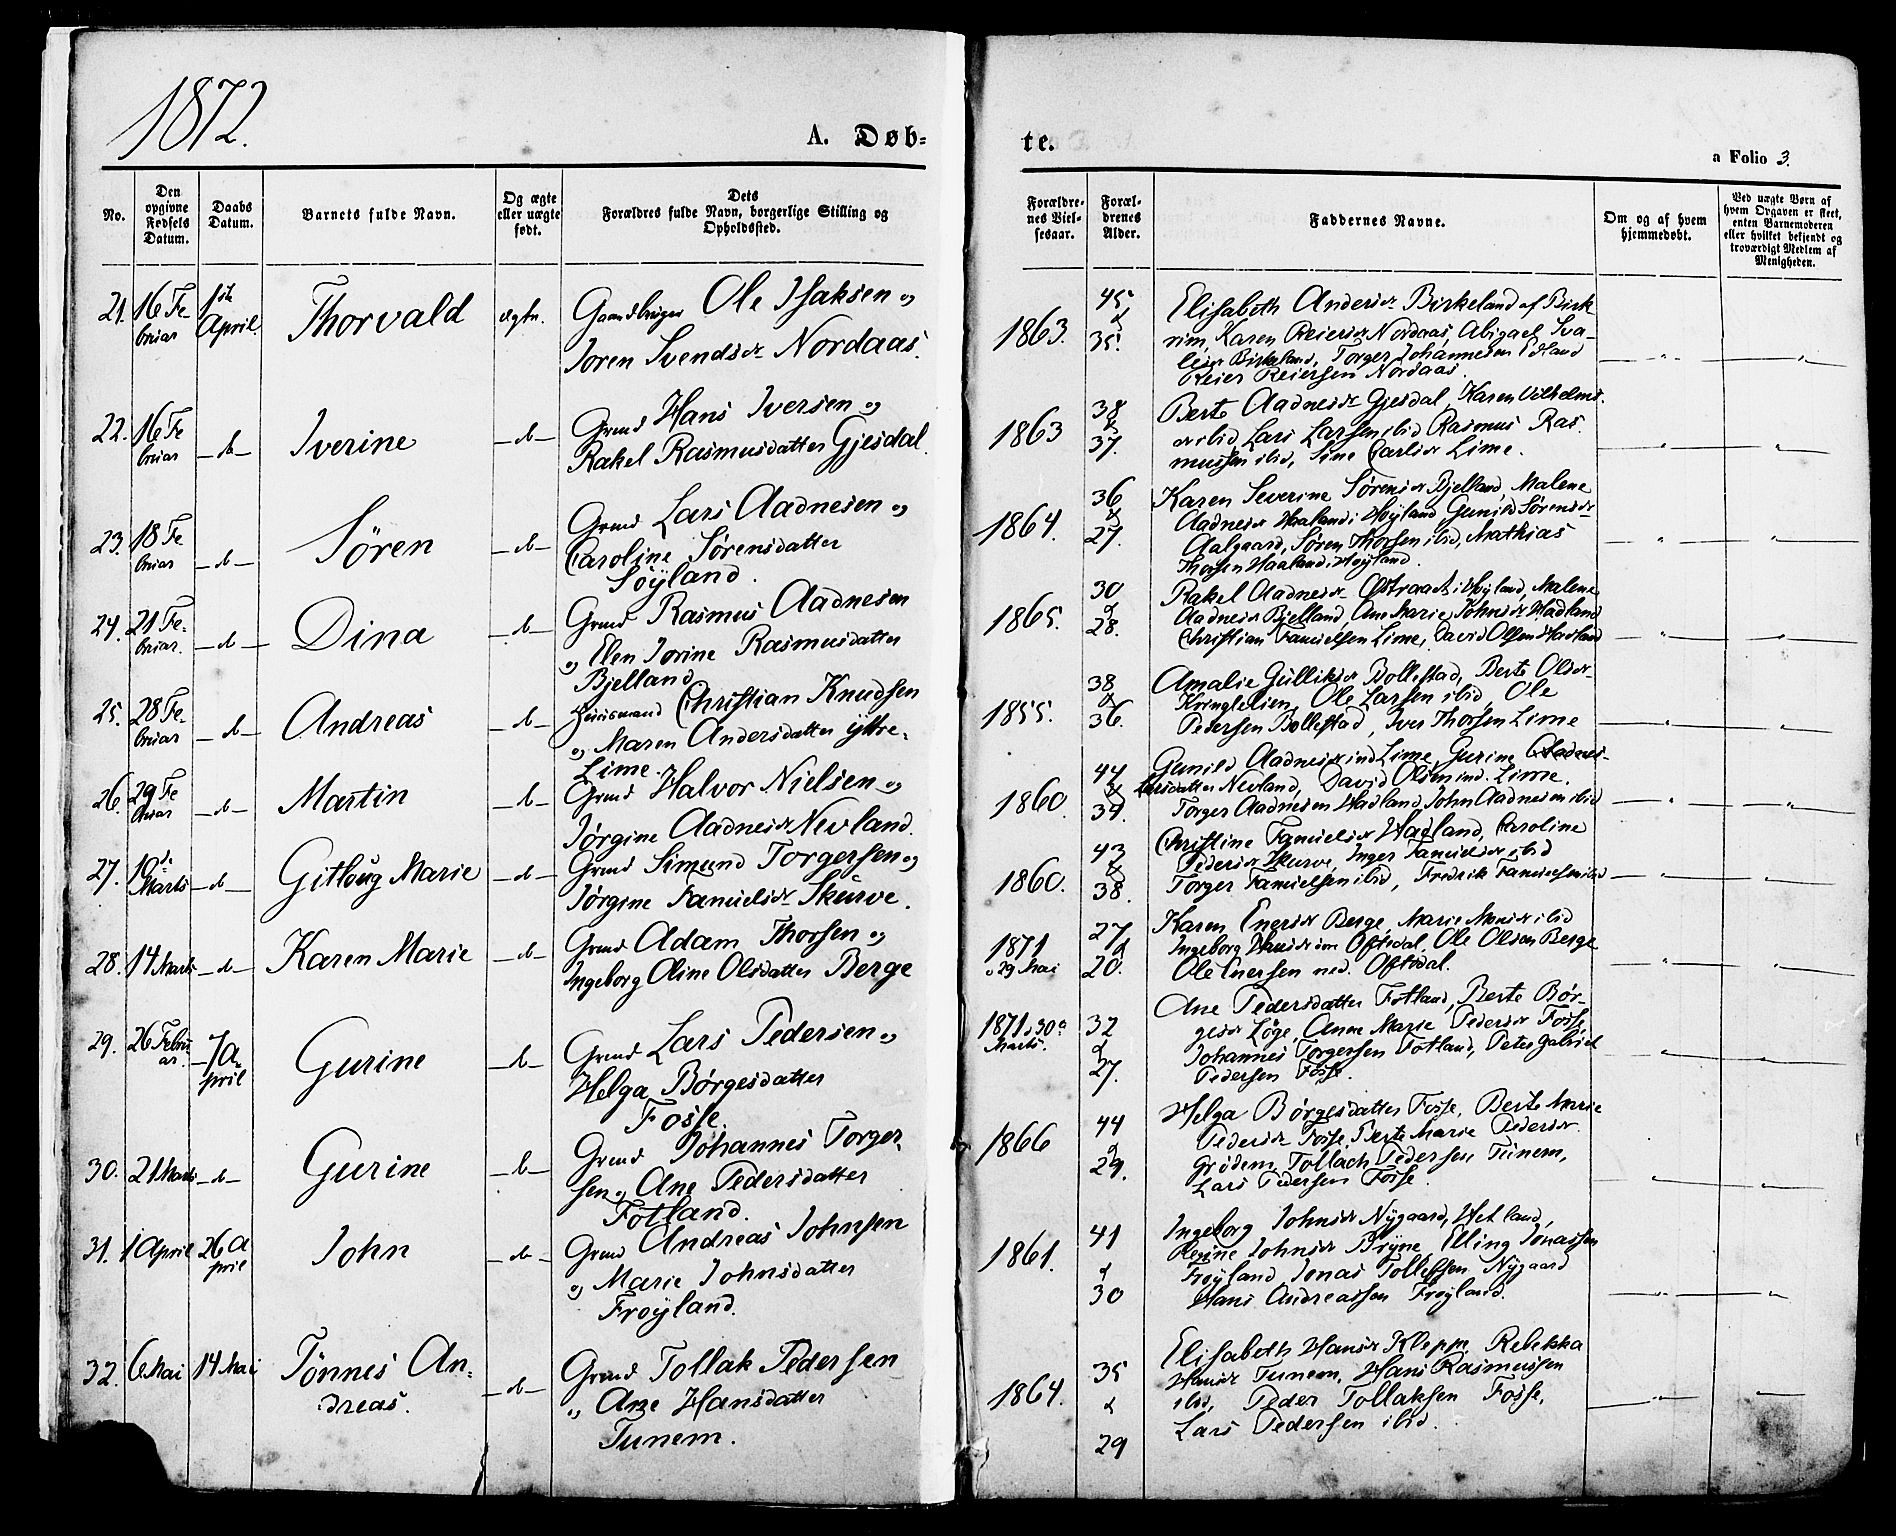 1872.
A. Døb-
te.
a Folio 3.
No.
Den opgivne Fødsels Datum.
Daabs Datum.
Barnets fulde Navn.
Og ægte eller uægte født.
Dets Forældres fulde Navn, borgerlige Stilling og Opholdssted.
Forældre-nes Viel-sesaar.
Foræl-drenes Alder.
Faddernes Navne.
Om og af hvem hjemmedøbt.
Ved uægte Børn af hvem Opgaven er skeet, enten Barnemoderen eller hvilket bekjendt og troværdigt Medlem af Menigheden.
21. 16 Fe-
bruar
1ste
April
Thorvald
ægte.
Gaardbruger Ole Isaksen og
Joren Svendsdr Nordaas.
1863.
45
&
35.
Elisabeth Andersdr Birkeland af Birk-
rim, Karen Reiersdr Nordaas, Abigael Sva-
lesdr Birkeland, Torger Johannesen Edland
Reier Reiersen Nordaas.
22. 16 Fe
bruar
-d-
Iverine
-d-
Grmd Hans Iversen og
Rakel Rasmusdatter Gjesdal.
1863
38
&
37.
Berte Aadnesdr Gjesdal, Karen Vilhelms-
dr ibid, Lars Larsen ibid Rasmus Ras-
mussen ibid, Sine Carlsdr Lime.
23. 18 Fe
bruar
-d-
Sören
-d-
Grmd Lars Aadnesen og
Caroline Sørensdatter
Söyland.
1864.
36
&
27.
Karen Severine Sörensdr Bjelland, Malene
Aadnesdr Haaland i Høyland Gunild Sörensdr
Aalgaard, Søren Thorsen ibid, Mathias
Thorsen Haaland i Høyland.
24. 21 Fe-
bruar.
-d-
Dina
-d-
Grmd Rasmus Aadnesen
og Elen Jorine Rasmusdatter
Bjelland
1865.
30
&
28.
Rakel Aadnesdr Østraadt i Høyland, Malene
Aadnesdr Bjelland, Ane Marie Johnsdr Hadland
Christian Samuelsen Lime, David Olsen Hadland
25. 28 Fe-
bruar
-d-
Andreas
-d-
Huusmand Christian Knudsen
og Maren Andersdatter yttre-
Lime.
1855.
38
&
36.
Amalie Gulliksdr Bollestad, Berte Olsdr
Kringlelien, Ole Larsen ibid, Ole
Pedersen Bollestad, Iver Thorsen Lime
26. 29 Fe
bruar
-d-
Martin
-d-
Grmd Halvor Nielsen og
Jörgine Aadnesdr Nevland.
1860.
44
&
34.
Gunild Aadnesdr ind. Lime, Gurine Aadnes-
Larsdatter Nevland, David Olsen ind. Lime.
Torger Aadnesen Hadland, John Aadnesen ibid
27. 10de
Marts
-d-
Gitloug Marie
-d-
Grmd Simund Torgersen og
Jørgine Samuelsdr Skurve.
1860.
43
&
38.
Christine Samuelsdr Hadland, Caroline
Pedersdr Skurve, Inger Samuelsdr ibid
Torger Samuelsen ibid, Fredrik Samuelsen ibid
28. 14 Marts
-d-
Karen Marie
-d-
Grmd Adam Thorsen og
Ingeborg Oline Olsdatter Berge
1871
29 Mai
27
&
20.
Karen Enersdr Berge, Marie Monsdr ibid
Ingeborg Oftedal, Ole Olsen Berge
Ole Enersen ned. Oftedal.
29. 26 Febru
ar.
7 A-
pril
Gurine
-d-
Grmd Lars Pedersen og
Helga Børgesdatter
Fosse.
1871 d 30te
Marts.
32
&
27.
Ane Pedersdatter Fotland, Berte Bør-
gesdr Löge, Anne Marie Pedersdr Fosse,
Johannes Torgersen Fotland, Peter Gabriel
Pedersen Fosse.
30. 21 Marts
-d-
Gurine
-d-
Grmd Johannes Torger-
sen og Ane Pedersdatter
Fotland.
1866
44
&
29.
Helga Börgesdatter Fosse, Berte Marie
Pedersdr Fosse, Berte Marie Pedersdr
Grødem, Tollach Pedersen Tunem,
Lars Pedersen Fosse.
31. 1 April
26 A
pril
John
-d-
Grmd Andreas Johnsen
og Marie Johnsdatter
Frøyland.
1861.
41
&
30
Ingeborg Johnsdr Nygaard, Hetland,
Regine Johnsdr Bryne, Elling Jonassen
Frøyland, Jonas Tollefsen Nygaard
Hans Andreassen Frøyland.
32. 6 Mai
14 Mai
Tönnes An-
dreas.
-d-
Grmd Tollak Pedersen
og Ane Hansdatter
Tunem.
1864.
35
&
29
Elisabeth Hansdr Kleppe, Rebekka
Hansdr Tunem, Hans Rasmussen
ibid, Peder Tollaksen Fosse,
Lars Pedersen ibid.